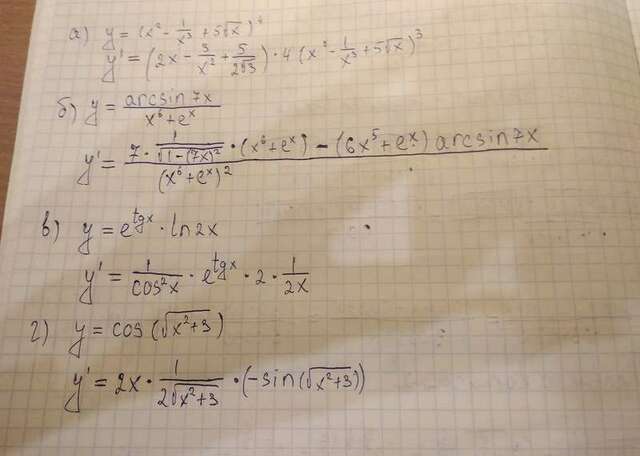 а) y = (x² - 1/x³ + 5√x)⁴
y' = (2x - 3/x² + 5/2√3) · 4 (x² - 1/x³ + 5√x)³
б) y = arcsin 7x / x⁶ + eˣ
y' = 7 · 1/√1-(7x)² · (x⁶ + eˣ) - (6x⁵ + eˣ) arcsin 7x / (x⁶ + eˣ)²
в) y = e^tgx · ln 2x
y' = 1/cos²x · e^tgx · 2 · 1/2x
г) y = cos (√x²+3)
y' = 2x · 1/2√x²+3 · (-sin (√x²+3))